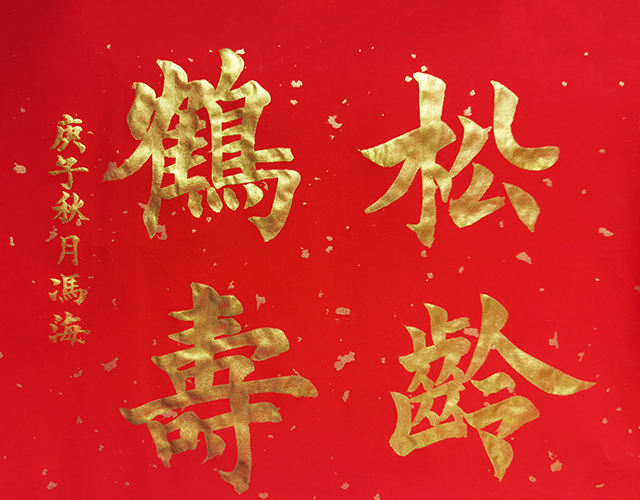 松齡
鶴壽
庚子秋月馮海